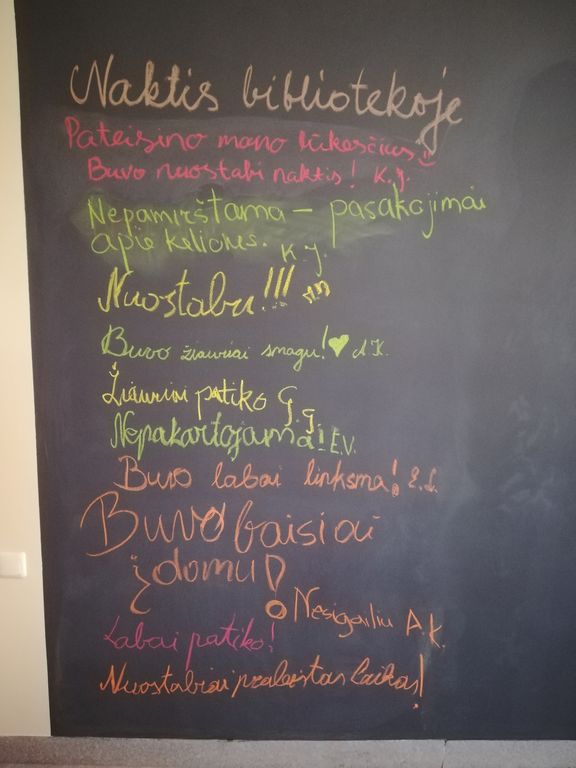 Naktis bibliotekoje
Pateisino mano lūkesčius
Buvo nuostabi naktis! K.J.
Nepamirštama – pasakojimai
apie keliones. K.J.
Nuostabu!!!
Buvo žiauriai smagu! A.K.
Žiauriai patiko G.G.
Nepakartojama! E.V.
Buvo labai linksma! E.S.
Buvo baisiai
įdomu!
Nesigailiu A.K.
Labai patiko!
Nuostabiai praleistas laikas!